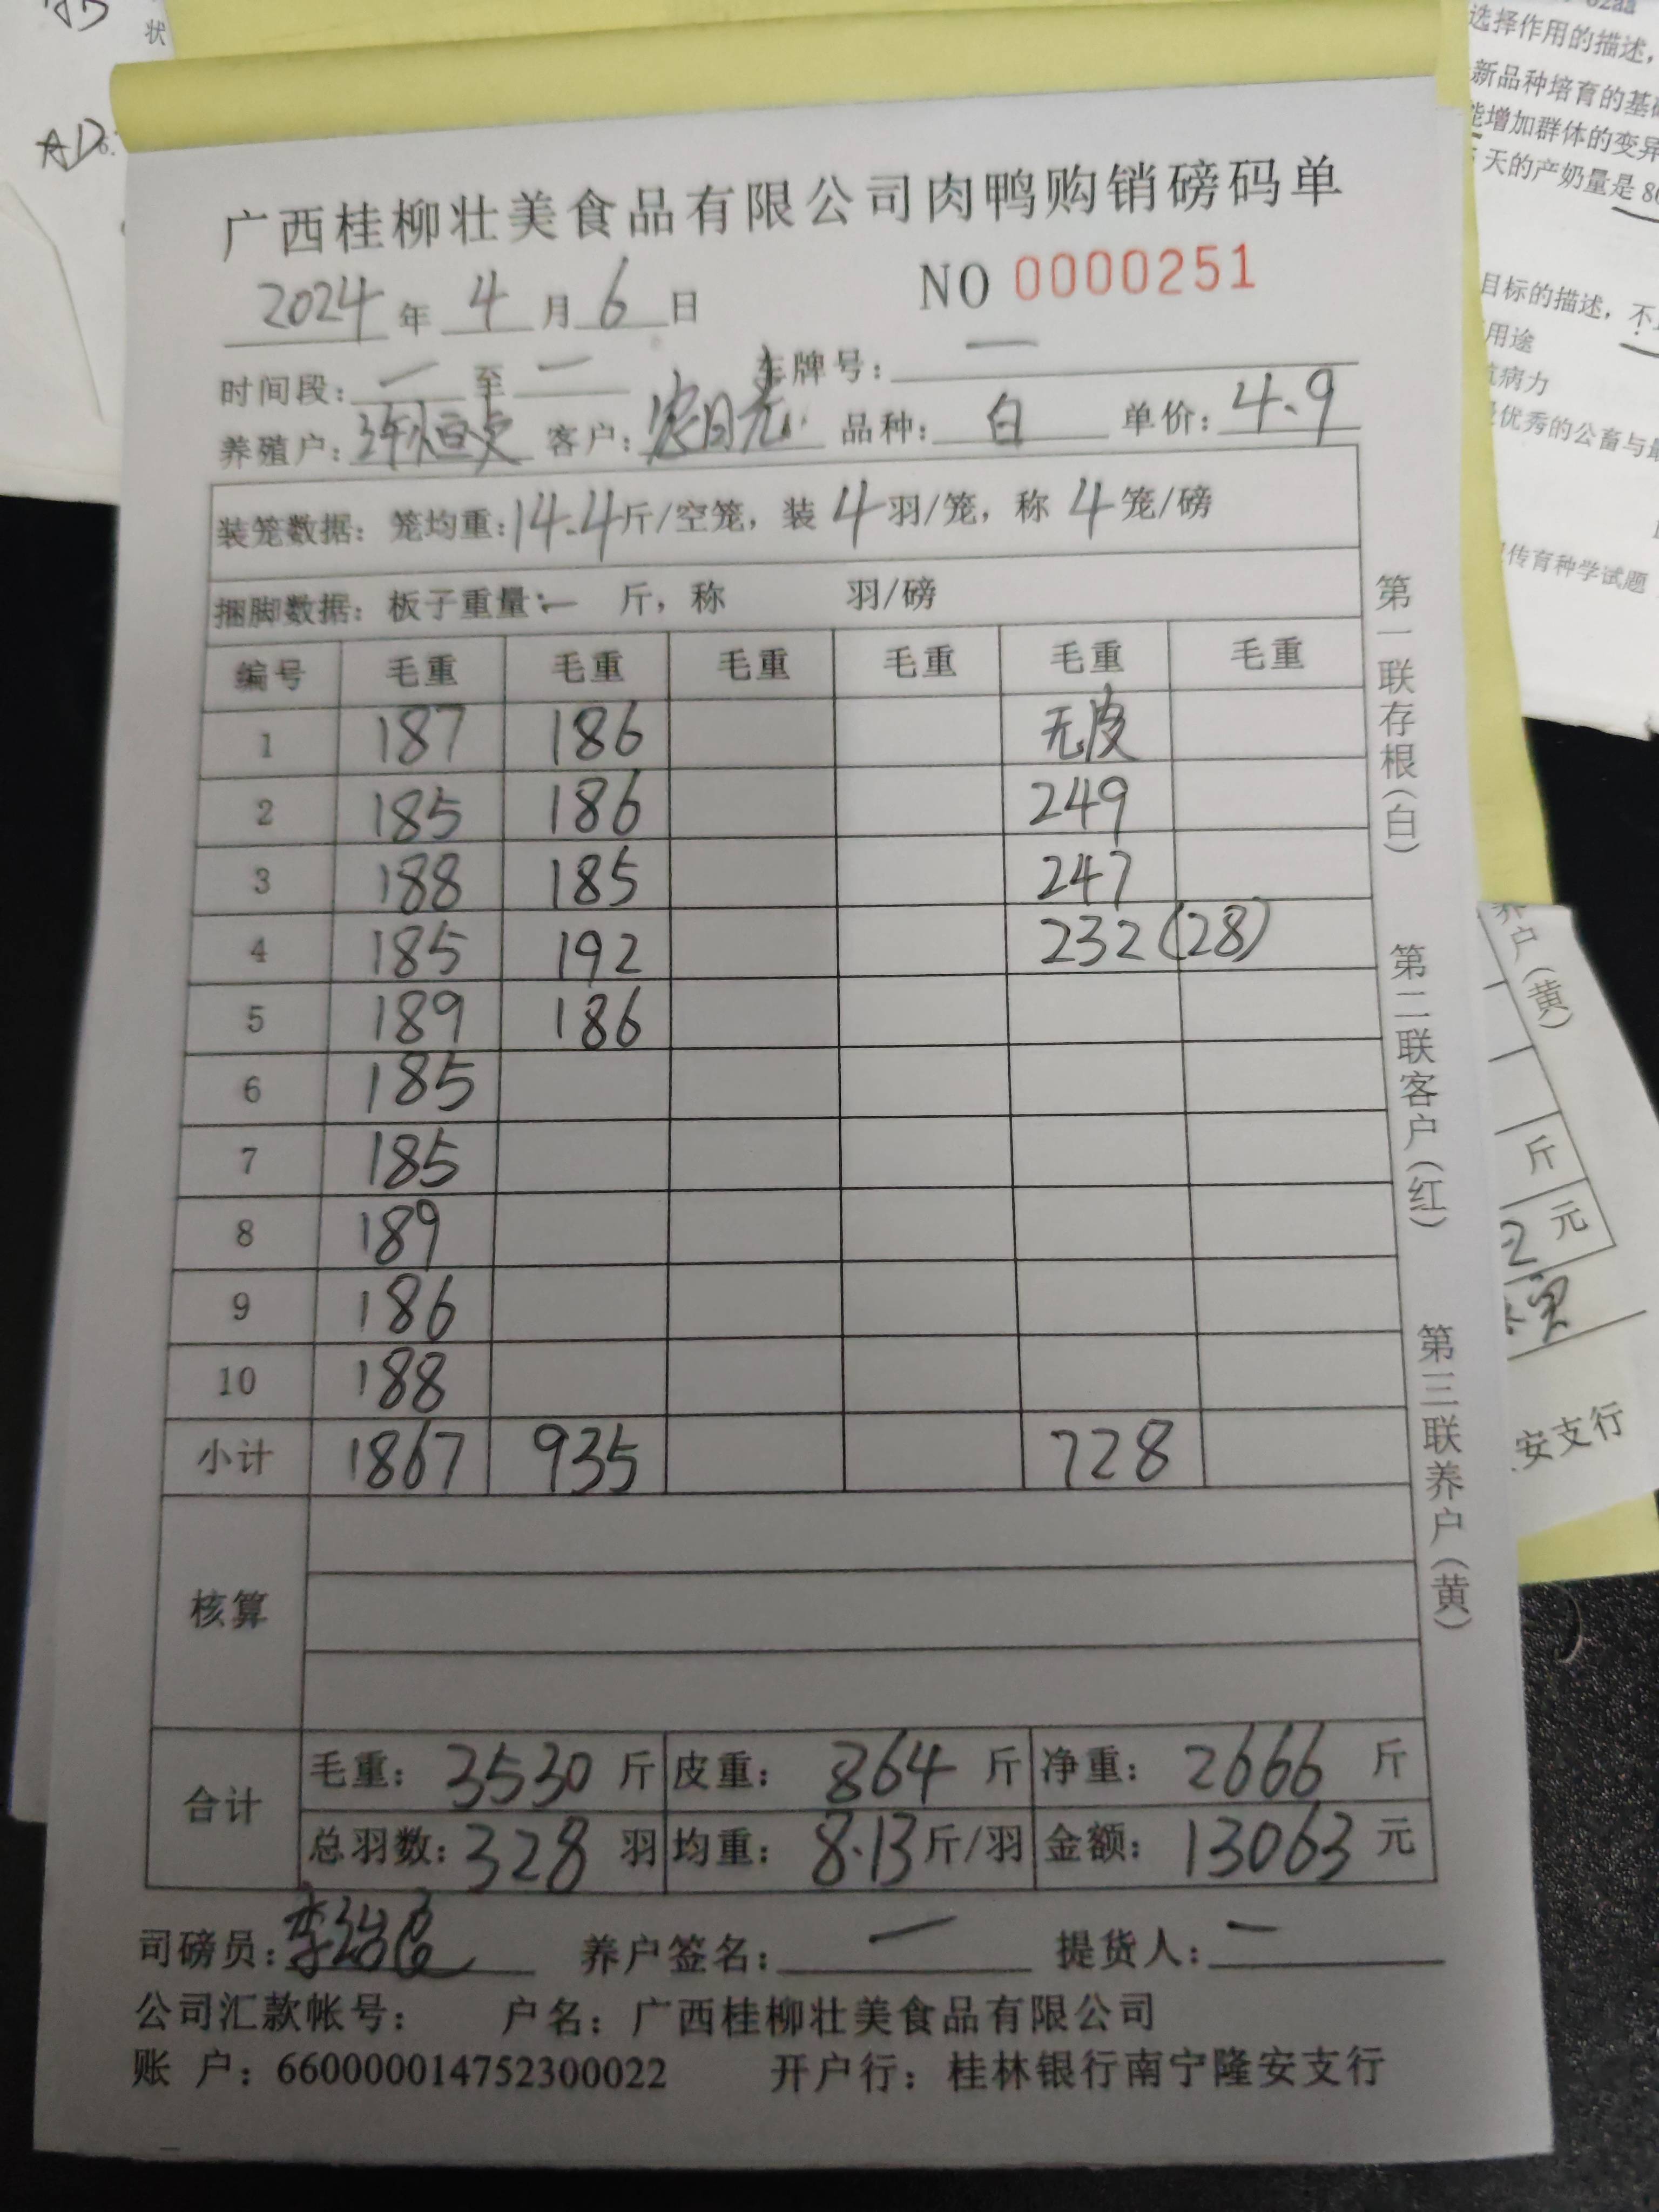 状
AD.
广西桂柳壮美食品有限公司肉鸭购销磅码单
2024 年 4 月 6 日 NO 0000251
时间段: 一 至 一 车牌号: 一
养殖户: 客户: 农日光 品种: 白 单价: 4.9
装笼数据: 笼均重: 14.4 斤/空笼, 装 4 羽/笼, 称 4 笼/磅
捆脚数据: 板子重量: 一 斤, 称 羽/磅
编号 毛重 毛重 毛重 毛重 毛重 毛重
1 187 186 无皮
2 185 186 249
3 188 185 247
4 185 192 232 (28)
5 189 186
6 185
7 185
8 189
9 186
10 188
小计 1867 935 728
核算
合计
毛重: 3530 斤 皮重: 864 斤 净重: 2666 斤
总羽数: 328 羽 均重: 8.13 斤/羽 金额: 13063 元
司磅员: 养户签名: 一 提货人: 一
公司汇款帐号: 户名: 广西桂柳壮美食品有限公司
账 户: 660000014752300022 开户行: 桂林银行南宁隆安支行
第一联存根(白)
第二联客户(红)
第三联养户(黄)
选择作用的描述,
新品种培育的基础
能增加群体的变异
天的产奶量是
目标的描述, 不
用途
抗病力
最优秀的公畜与最
传育种学试题
养户(黄)
斤
2 元
安支行